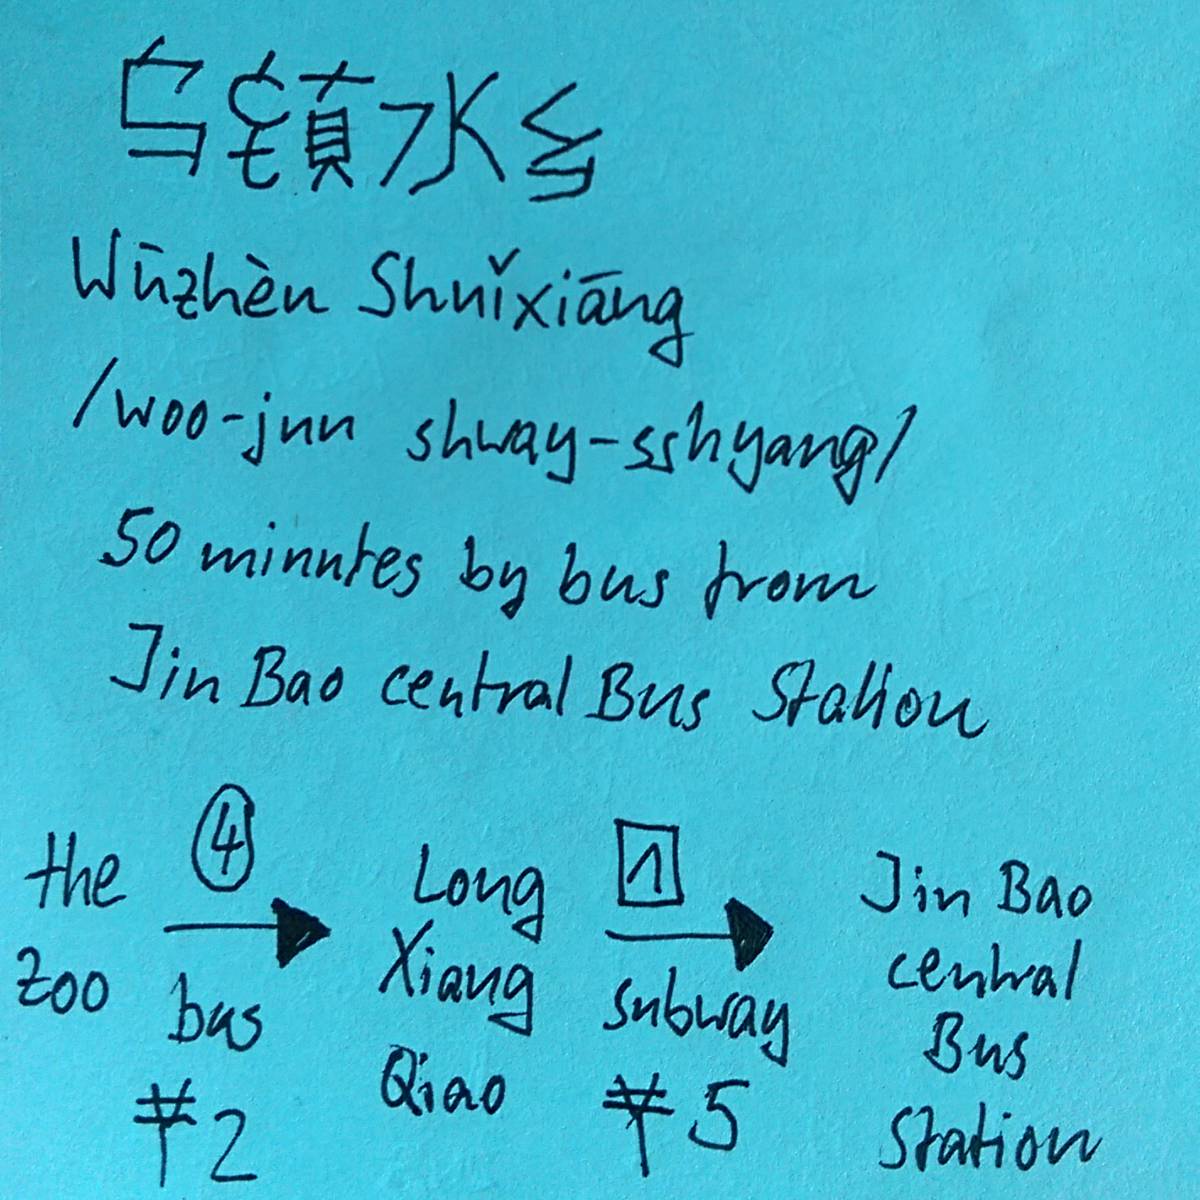 乌镇水乡
Wūzhèn Shuǐxiāng
/woo-jun shway-sshyang/
50 minutes by bus from
Jin Bao central Bus Station
the
zoo
④
bus
¥2
Long
Xiang
Qiao
1
subway
¥5
Jin Bao
central
Bus
Station